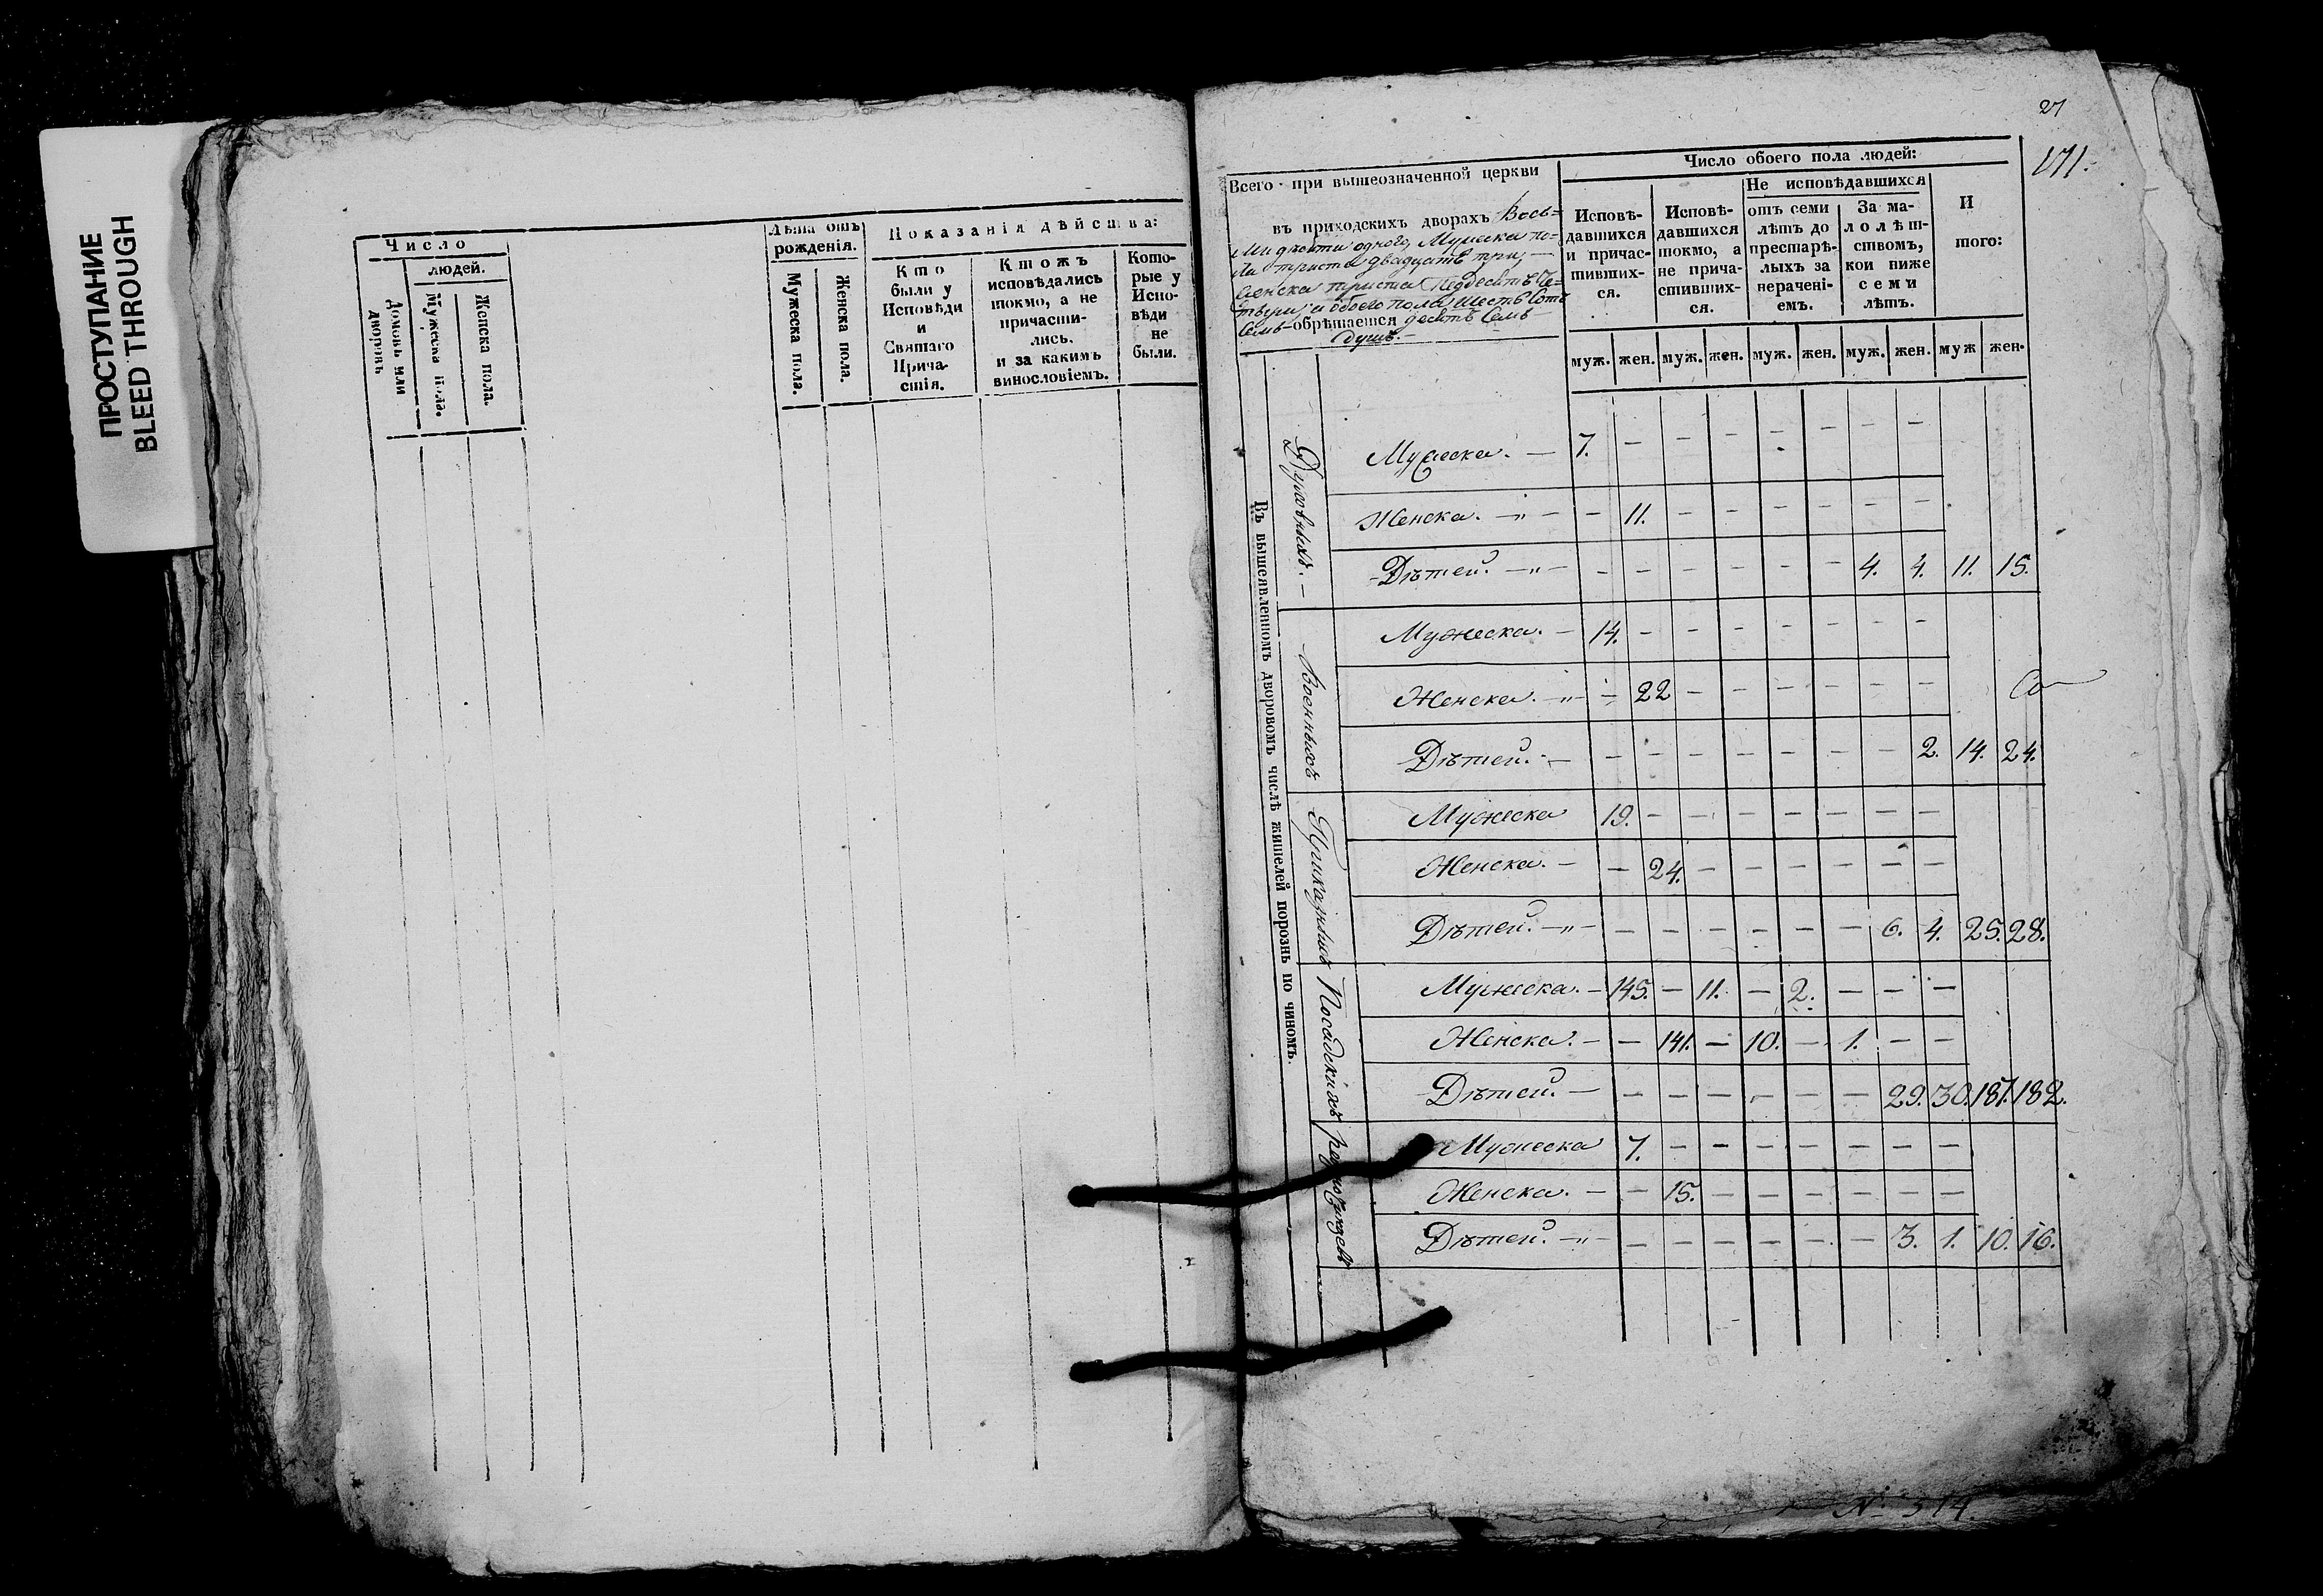 ПРОСТУПАНИЕ
BLEED THROUGH
Число
людей.
Домовъ или дворовъ
Мужеска пола.
Женска пола.
Лѣта отъ рожденія.
Мужеска пола.
Женска пола.
Показанія дѣйства:
Кто были у Исповѣди и Святаго Причастія.
Ктожъ исповѣдались токмо, а не причастились, и за какимъ винословіемъ.
Которые у Исповѣди не были.
27
171.
Всего при вышеозначенной церкви
въ приходскихъ дворахъ Вось=
мидесяти одного, Мужеска по=
ла триста двадцать три,
женска триста
и обоего пола шесть сотъ
семь-обрѣтается десятъ семь
душъ.
Число обоего пола людей:
Исповѣдавшихся и причастившихся.
Исповѣдавшихся токмо, а не причастившихся.
Не исповѣдавшихся
отъ семи лѣтъ до престарѣлыхъ за нерачені-емъ.
За малолѣтствомъ, кои ниже семи лѣтъ.
И того:
муж. жен. муж. жен. муж. жен. муж. жен. муж жен.
Въ вышеявленномъ дворовомъ числѣ жителей порознь по чиномъ.
Духовныхъ.
Мужеска. — 7. — — — — — — —
Женска. —„— — 11. — — — — — —
Дѣтей. —„— — — — — — — 4. 4. 11. 15.
Военныхъ
Мужеска. — 14. — — — — — — —
Женска. —„— — 22 — — — — — —
Дѣтей. — — — — — — — — 2. 14. 24.
Приказныхъ
Мужеска 19. — — — — — — —
Женска. — — 24. — — — — — —
Дѣтей. —„— — — — — — — 6. 4. 25. 28.
Посадскихъ
Мужеска. — 145. — 11. — 2. — — —
Женска. — — 141. — 10. — 1. — —
Дѣтей. — — — — — — — 29. 30. 187. 182.
разночинцевъ
Мужеска 7. — — — — — — —
Женска. — — 15. — — — — — —
Дѣтей. —„— — — — — — — 3. 1. 10. 16.
№ 514.